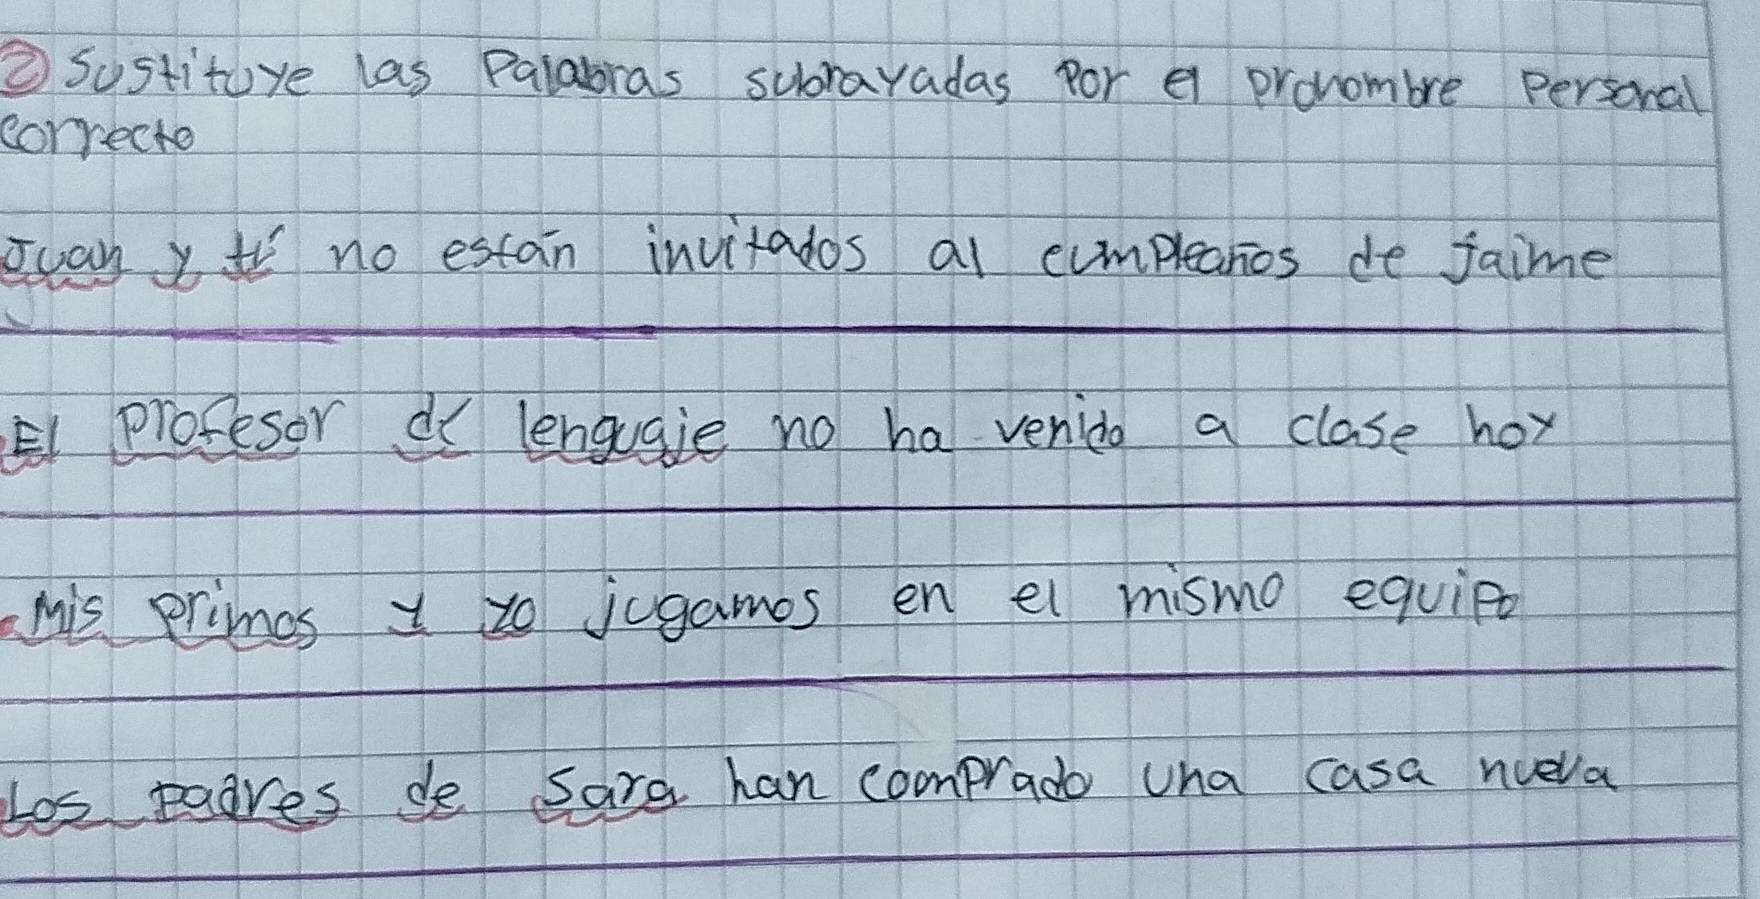 ② Sustituye las Palabras subrayadas por el pronombre Personal
correcto
Juan y tú no están invitados al cumpleaños de Jaime
El profesor de lenguaje no ha venido a clase hoy
Mis primos y yo jugamos en el mismo equipo
Los padres de Sara han coomprado una casa nueva